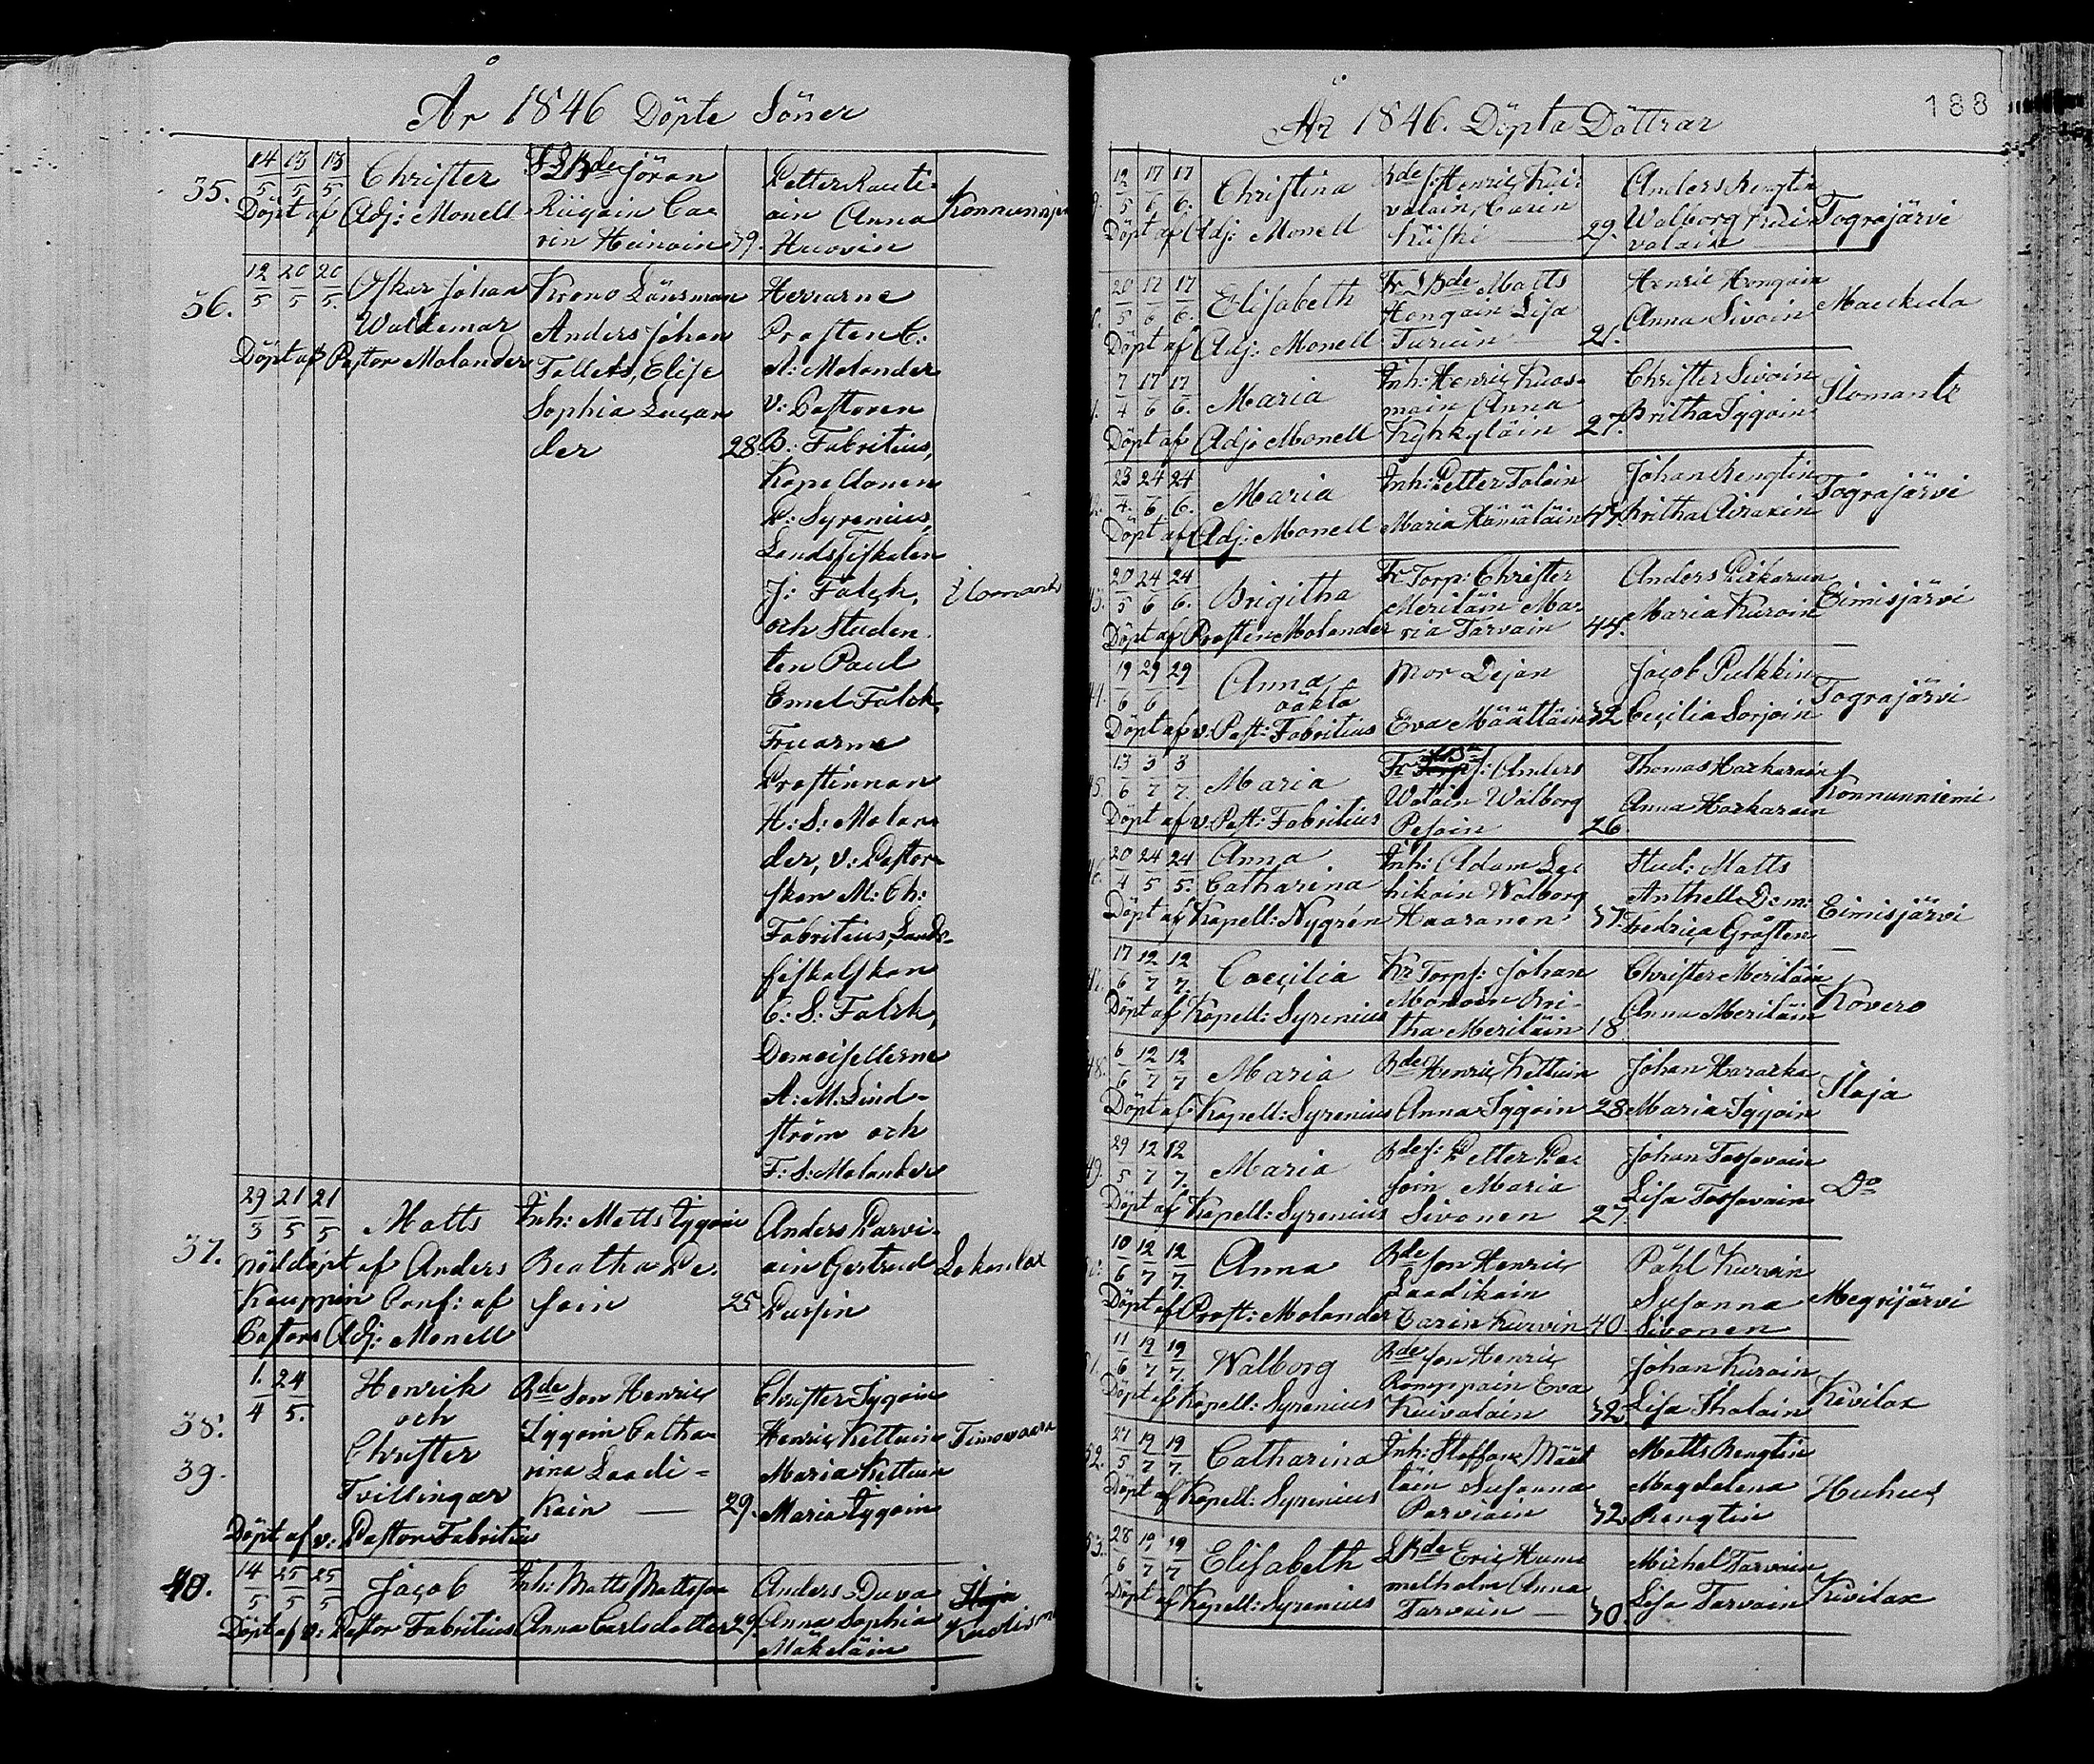 År 1846 Döpte Söner
35.
14/5 15/5 15/5
Christer
Döpt af Adj: Monell
Jöran
Riigoin Ca-
rin Heinoin 39.
Petter Rauti-
ain Anna
Huovin
36.
12/5 20/5 20/5.
Oskar Johan
Waldemar
Döpt af Pastor Molander
Krono Länsman
Anders Johan
Falleks, Elise
Sophia Lucan
der 28.
Herrarne
Prosten C:
A: Molander
V: Pastoren
B: Fabritius,
Kapellanen
P: Syrenius,
Landsfiskalen
J: Falck,
och Studen
ten Paul
Emel Falck,
Fruarne
Prostinnan
H: S: Molan
der, v: Pastor-
skan M: Ch:
Fabritius, Lands-
fiskalskan
C: S: Falck,
Demoisellerne
A: M: Lind-
ström och
F: S: Molander
Ilomants
37.
29/3 21/5 21/5
Matts
nöddöpt af Anders
Kauppin Conf: af
Pastors Adj: Monell
Inh: Matts Iygoin
Beatha Pe-
soin 25
Anders Parvi-
ain Gertrud
Pussin
38.
39.
1./4 24/5.
Henrik
och
Christer
Tvillingar
Döpt af v: Pastor Fabritiu
Bde Son Henric
Iygoin Catha-
rina Laadi-
kain 29.
Christer Iygoin
Henric Kettuin
Maria Kettuin
Maria Iygoin
Timovaara
40.
14/5 25/5 25/5
Jacob
Döpt af v: Pastor Fabritius
Inh: Matts Mattsson
Anna Carlsdotter 29.
Anders Duva
Anna Sophia
Mäkeläin
År 1846. Döpta Döttrar
188
12/5 17/6 17/6.
Christina
Döpt af Adj: Monell
Bde s: Henric Kui-
valain, Carin
Kiiski 29.
Anders Rengtin
Walborg Kui
valain
Tograjärvi
20/5 17/6 17/6.
Elisabeth
Döpt af Adj: Monell
Kr LBde Matts
Hongain Lisa
Turuin 21.
Henric Hongain
Anna Sivoin
Maukula
7/4 17/6 17/6.
Maria
Döpt af Adj: Monell
Inh: Henric Kuos-
main, Anna
Kyhkyläin 27.
Christer Sivoin
Britha Iygoin
Ilomants
23/4. 24/6. 24/6.
Maria
Döpt af Adj: Monell
Inh: Petter Tolain
Maria Hämäläin
Johan Rengtin
Britha Airaxin
Tograjärvi
20/5 24/6 24/6.
Brigitha
Döpt af Prosten Molander
Kr Torp: Christer
Meriläin Ma-
ria Tarvain 44.
Anders Piikarain
Maria Kuroin
Eimisjärvi
19/6 29/6 29
Anna
oäkta
Döpt af v: Past: Fabritius
Mor Pejan
Eva Määttäin 32
Jacob Pulkkin
Cecilia Sorjoin
Tograjärvi
13/6 3/7 3/7.
Maria
Döpt af v: Past: Fabritius
Anders
Watain Walborg
Pesoin 26
Thomas Harkarain
Anna Harkarain
Konnunniemi
20/4 24/5 24/5.
Anna
Catharina
Döpt af Kapell: Nygrén
Inh: Adam Las
hikain Walborg
Haaranen 37.
Stud: Matts
Anthell Dem:
Fredrica Gråsten
Eimisjärvi
17/6 12/7 12/7.
Caecilia
Döpt af Kapell: Syrenius
Kr Torps: Johan
Monoin Bri-
tha Meriläin 18
Christer Meriläin
Anna Meriläin
Kovero
48.
6/6 12/7 12/7
Maria
Döpt af Kapell: Syrenius
Bde Henric Kettuin
Anna Iygoin 28
Johan Hararka
Maria Iygoin
Ilaja
49.
29/5 12/7 12/7.
Maria
Döpt af Kapell: Syrenius
Bde s: Petter Pa
soin Maria
Sivonen 27.
Johan Tossavain
Lisa Tossavain
Do
10/6 12/7 12/7.
Anna
Döpt af Prost: Molander
Bde son Henric
Laadikain
Carin Kurvin 40
Påhl Kurvin
Susanna
Sivonen
Megrijärvi
11/6 19/7 19/7.
Walborg
Döpt af Kapell: Syrenius
Bde son Henric
Romppain Eva
Kuivalain 32
Johan Kuroin
Lisa Ihalain
Kivilax
52.
27/5 19/7 19/7.
Catharina
Döpt af Kapell: Syrenius
Inh: Staffan Määt
täin Susanna
Parviain 32
Matts Rengtin
Magdalena
Rengtin
Huhus
53.
28/6 19/7 19/7
Elisabeth
Döpt af Kapell: Syrenius
LBde Eric Hum-
melholm Anna
Tarvain 30.
Michel Tarvain
Lisa Tarvain
Kivilax